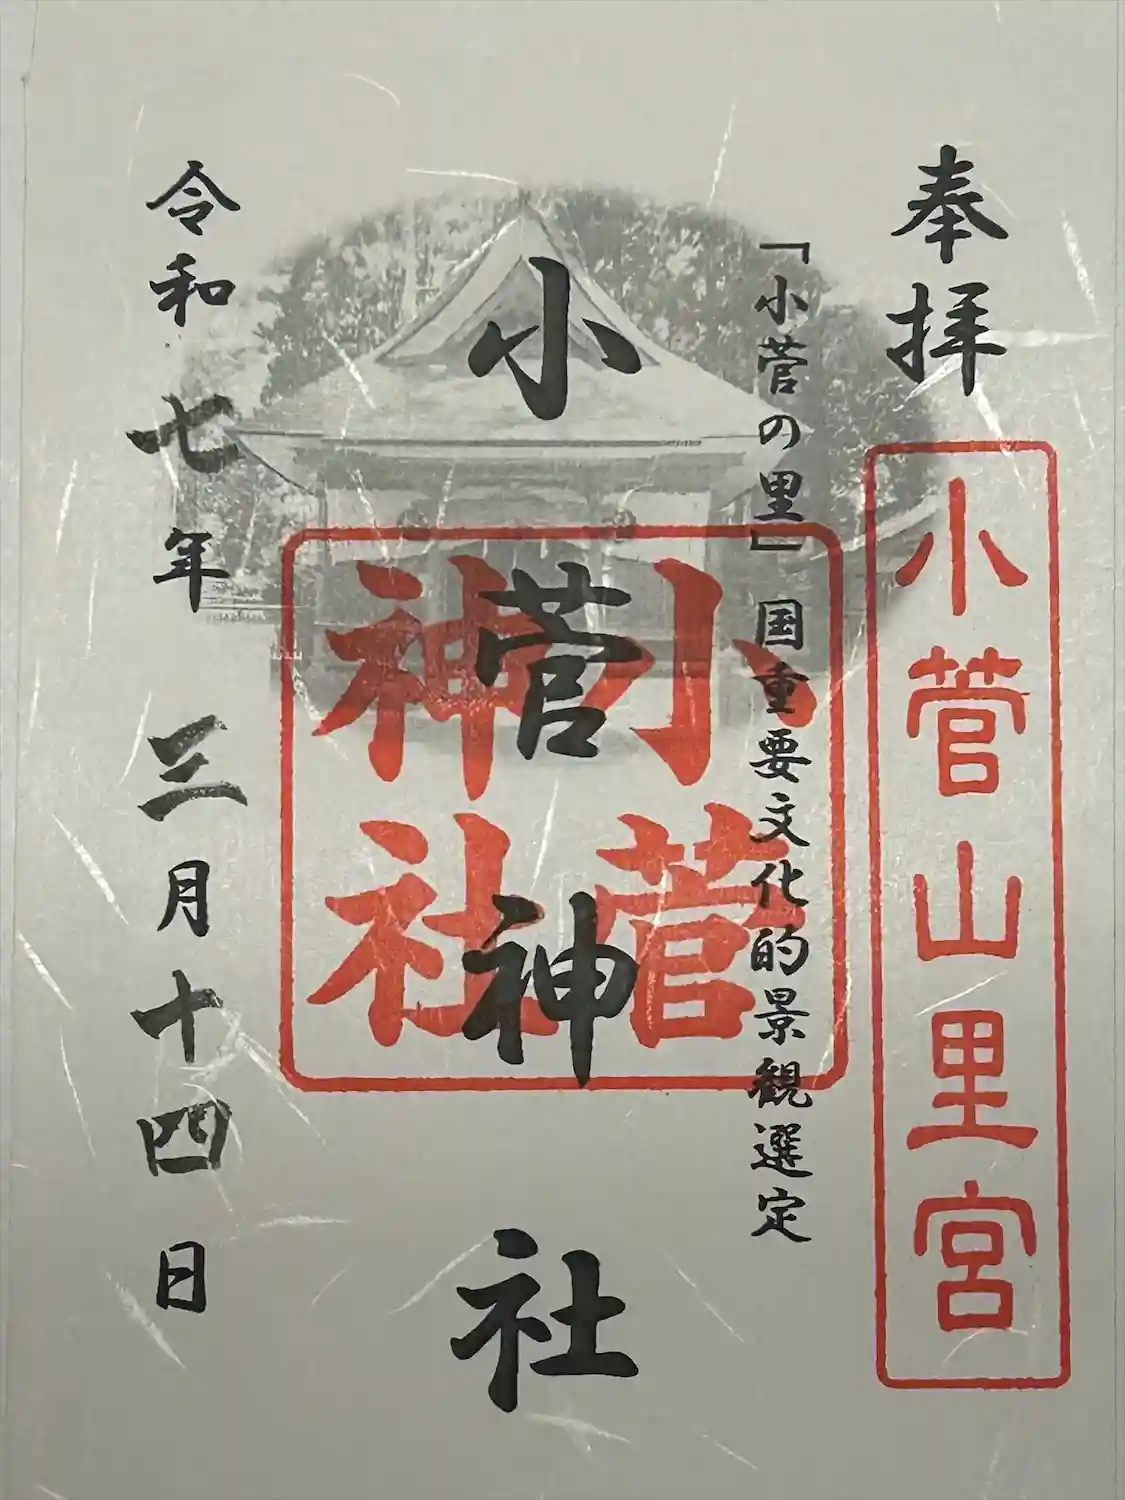 奉拝
小菅山里宮
「小菅の里」国重要文化的景観選定
小菅神社
小菅
神社
令和七年三月十四日